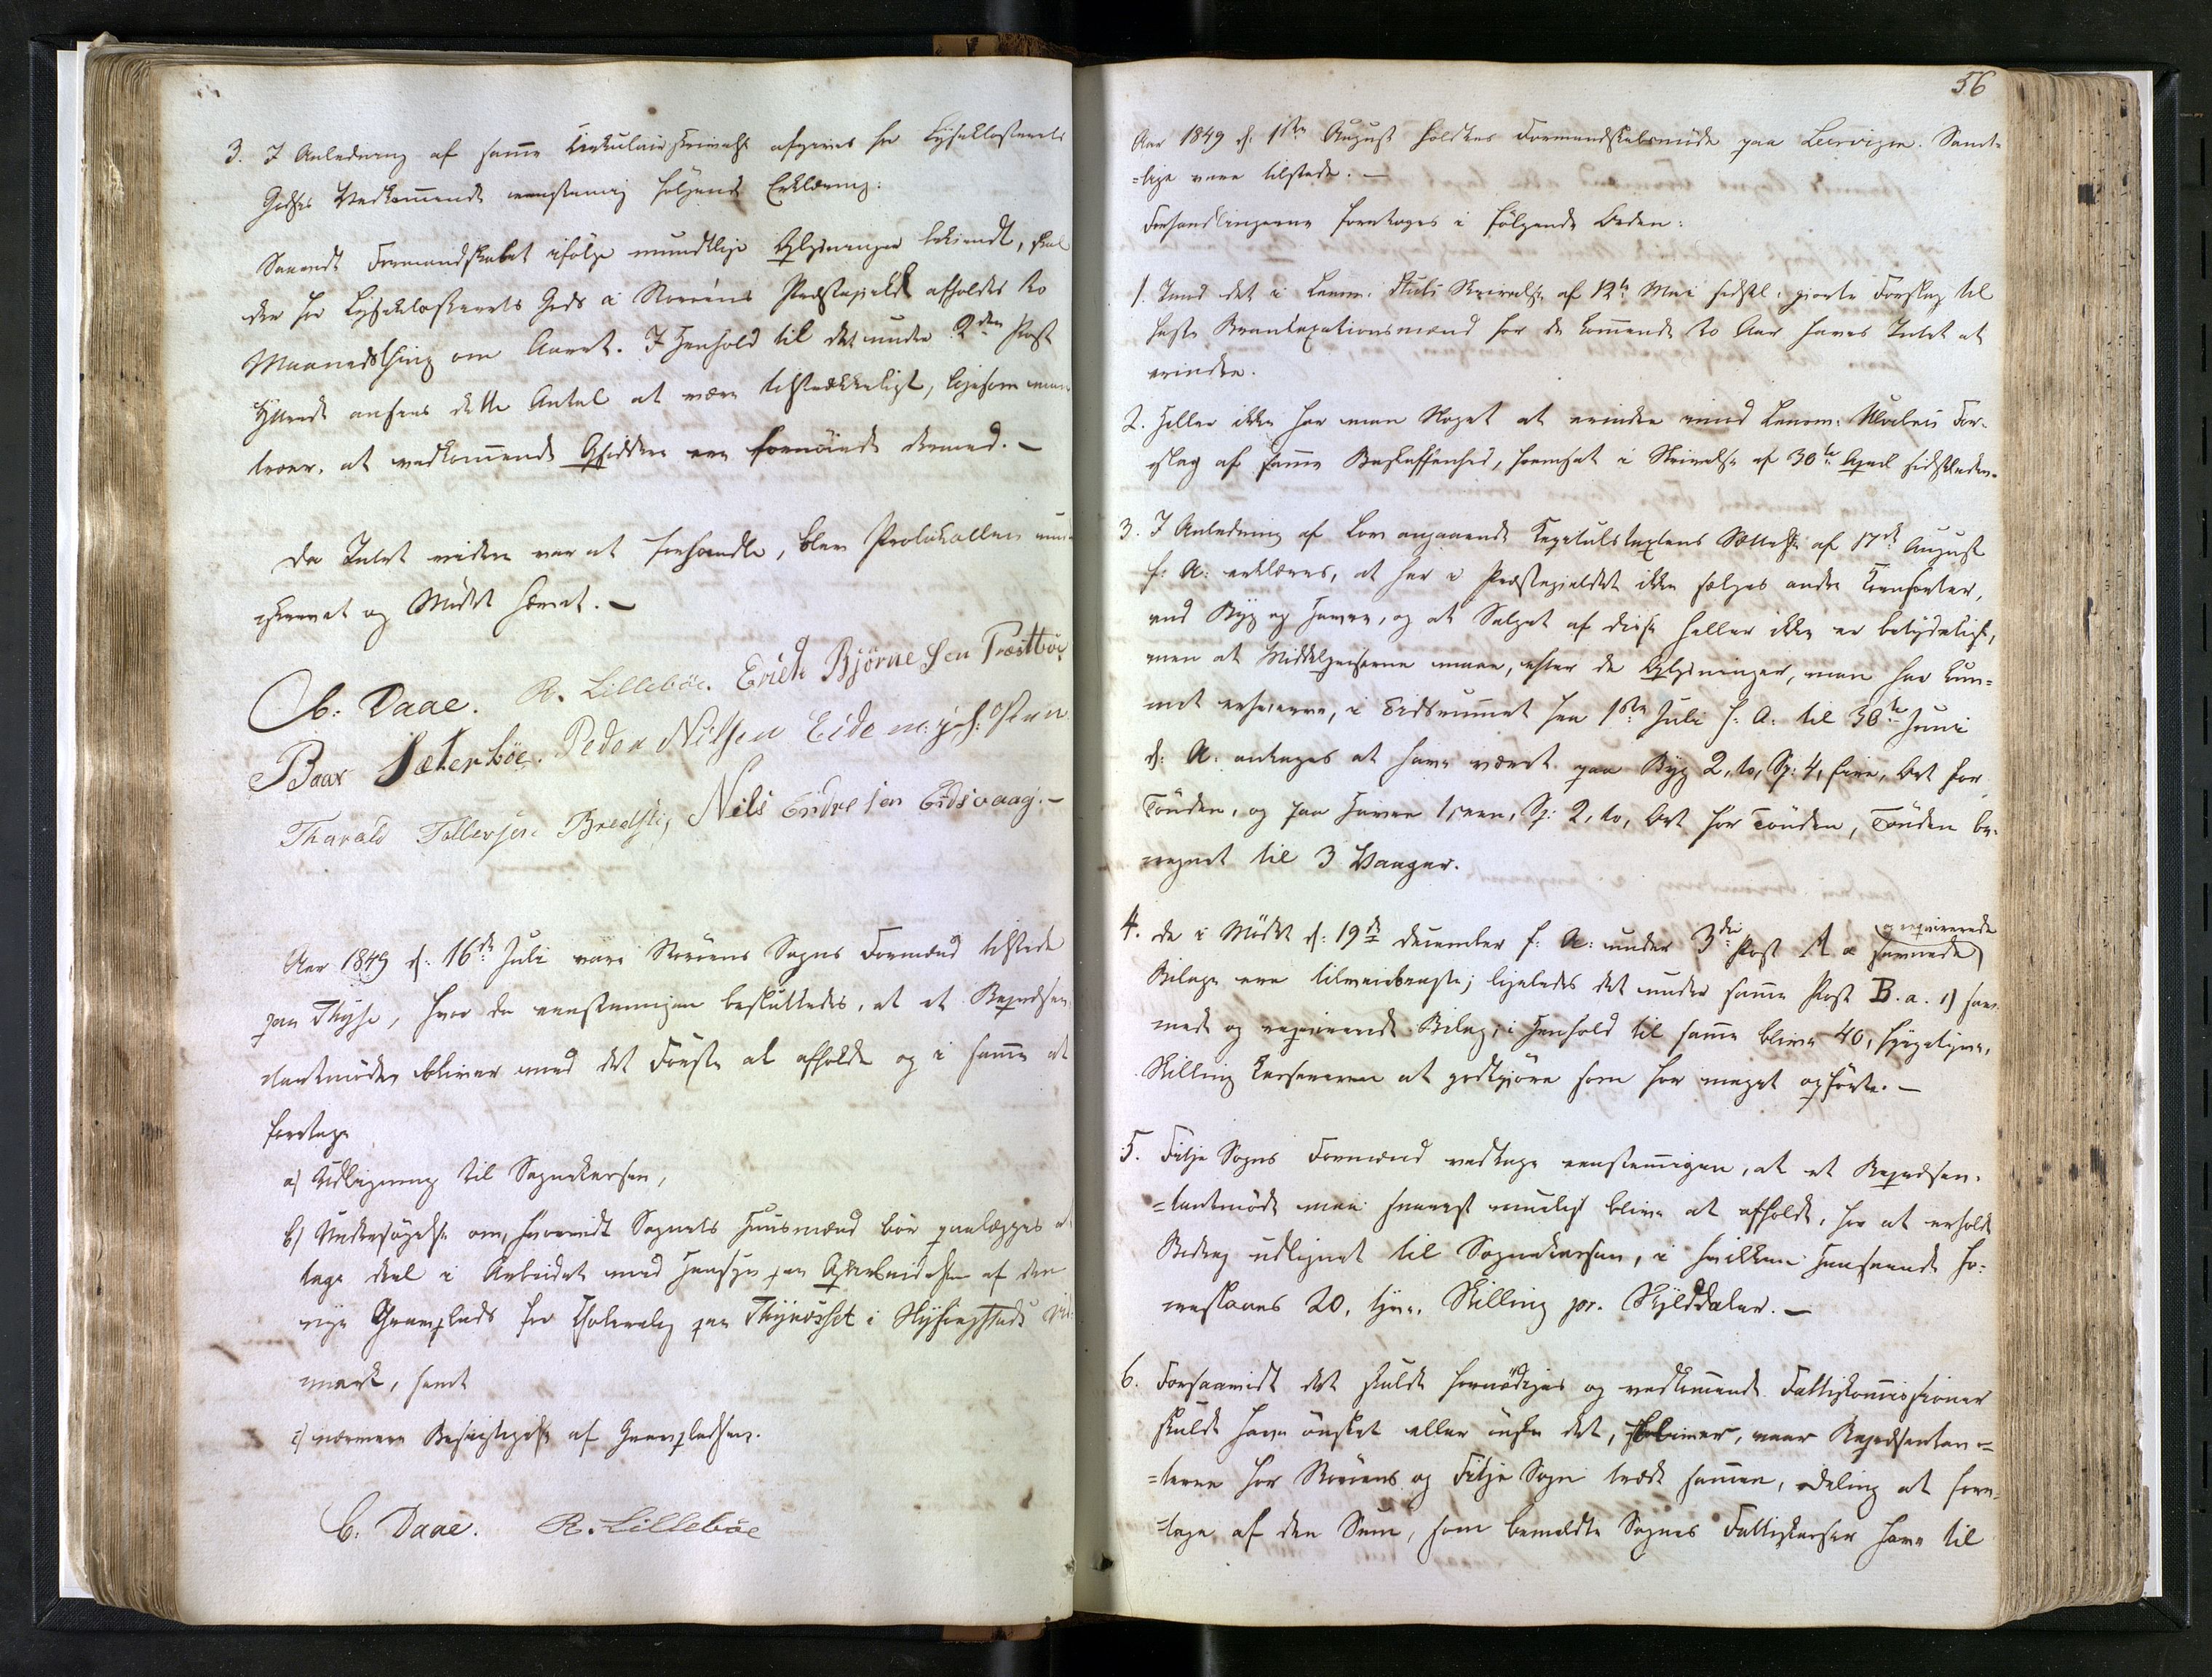 3. I Anledning af samme Cirkulairskrivelse afgives for Lysekloster
Godses Vedkommende eenstemmig følgende Erklæring:
Saavidt Formandskabet ifølge mundtlige Oplysninger bekiendt, skal
der for Lyseklosterets Gods i Storöens Præstegield afholdes to
Maanedsthing om Aaret. I Henhold til det under 2den Post
Yttrede ansees dette Antal at være tilstrækkeligt, ligesom man
troer, at vedkommende Opsiddere ere fornöiede dermed. –
Da Intet videre var at forhandle, blev Protokollen under
skrevet og Mödet hævet. –
C. Daae. R. Lilleböe. Erich Björnesen Trættböe
Baar Sæterböe. Peder Nilsen Eide m: p: f: Pen
Tharald Tollevsen Bredsti, Nils Endresen Eidsvaag. –
Aar 1849 d: 16de Juli vare Storöens Sogns Formænd tilstede
paa Thyse, hvor da eenstemmigen besluttedes, at et Repræsen
tantmöde bliver med det Förste at afholde og i samme at
foretage
a) Udligning til Sognekassen,
b) Undersögelse om, hvorvidt Sognets Huusmænd bör paalægges at
tage deel i Arbeidet med Hensyn paa Oparbeidelsen af den
nye Gravplads for Choleralig paa Thyneset i Hysingstads Ud
mark, samt
c) nærmere Besigtigelse af Gravpladsen.
C. Daae. R. Lilleböe
56
Aar 1849 d: 1ste August holdtes Formandskabsmöde paa Leervigen. Samt-
=lige vare tilstede. –
Forhandlingerne foretoges i fölgende Orden:
1. Imod det i Lensm: Skrivelse af 12te Mai sidstl: giorte Forslag til
faste Branntaxationsmænd for de kommende to Aar haves Intet at
erindre.
2. Heller ikke har man Noget at erindre imod Lensm: For-
slag af samme Beskaffenhed, fremsat i Skrivelse af 30te April sidstleden.
3. I Anledning af Lov angaaende Kapitulstaxtens Sættelse af 17de August
f: A: erklæres, at her i Præstegieldet ikke sælges andre Kornsorter,
end Byg og Havre, og at Salget af disse heller ikke er betydeligt,
men at Middelpriserne maae, efter de Oplysninger, man har kun-
net erhverve, i Tidsrummet fra 1ste Juli f: A: til 30te Juni
d: A: antages at have været paa Byg 2, to, Sp: 4, fire, Ort for
Tönden, og paa Havre 1, een, Sp: 2, to, Ort for Tönden, Tönden be-
regnet til 3 Vaager.
4. De i Mödet d: 19de December f: A: under 3die Post A a savnede
og reqvirerede
Bilage ere tilveiebragte; ligeledes det under samme Post B. a. 1) sav-
nede og reqvirerede Bilag; i Henhold til samme blive 40, fyrgetyve,
Skilling Kassereren at godtgiöre som for meget opförte. –
5. Fitje Sogns Formænd vedtage eenstemmigen, at et Repræsen-
=tantmöde maa snarest mueligt blive at afholde, for at erholde
Bidrag udlignet til Sognekassen, i hvilken Henseende fo-
reslaaes 20, tyve, Skilling pr. Skylddaler. –
6. Forsaavidt det skulde fornödiges og vedkommende Fattigkommissioner
skulde have önsket eller önske det, bliver, naar Repræsentan-
=terne for Storöens og Fitje Sogn træde sammen, Deling at fore-
=tage af den Sum, som bemeldte Sognes Fattigkasser have til